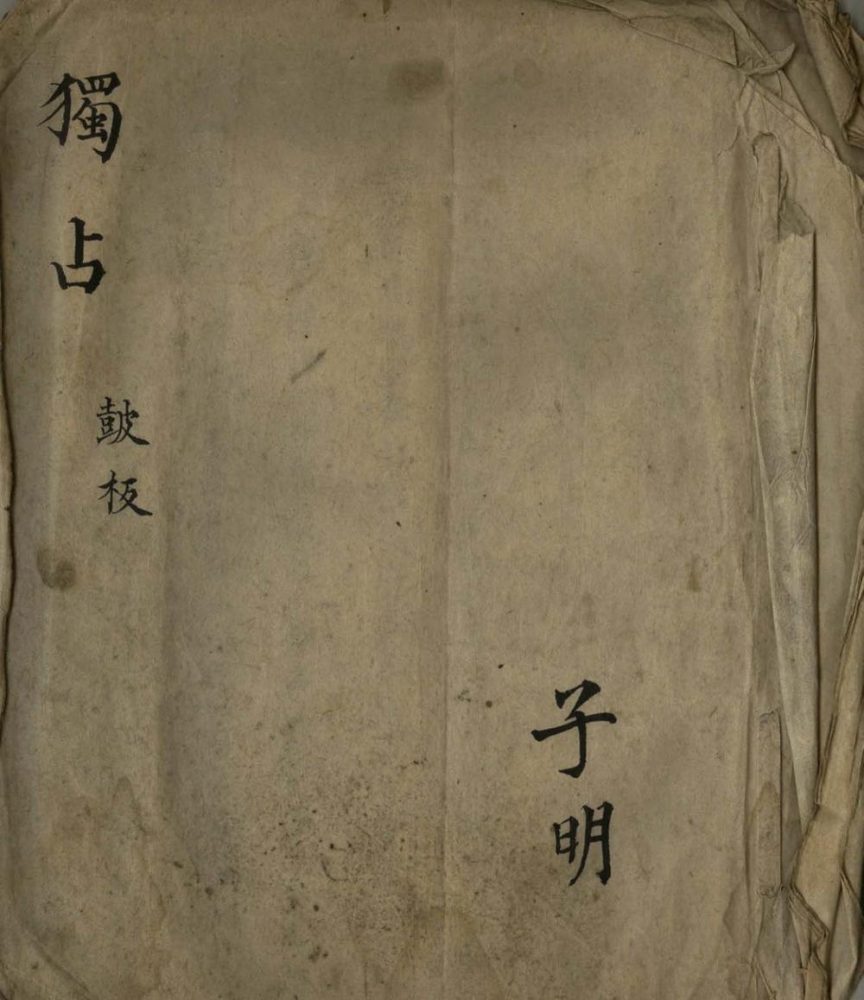 獨占
皷板
子明